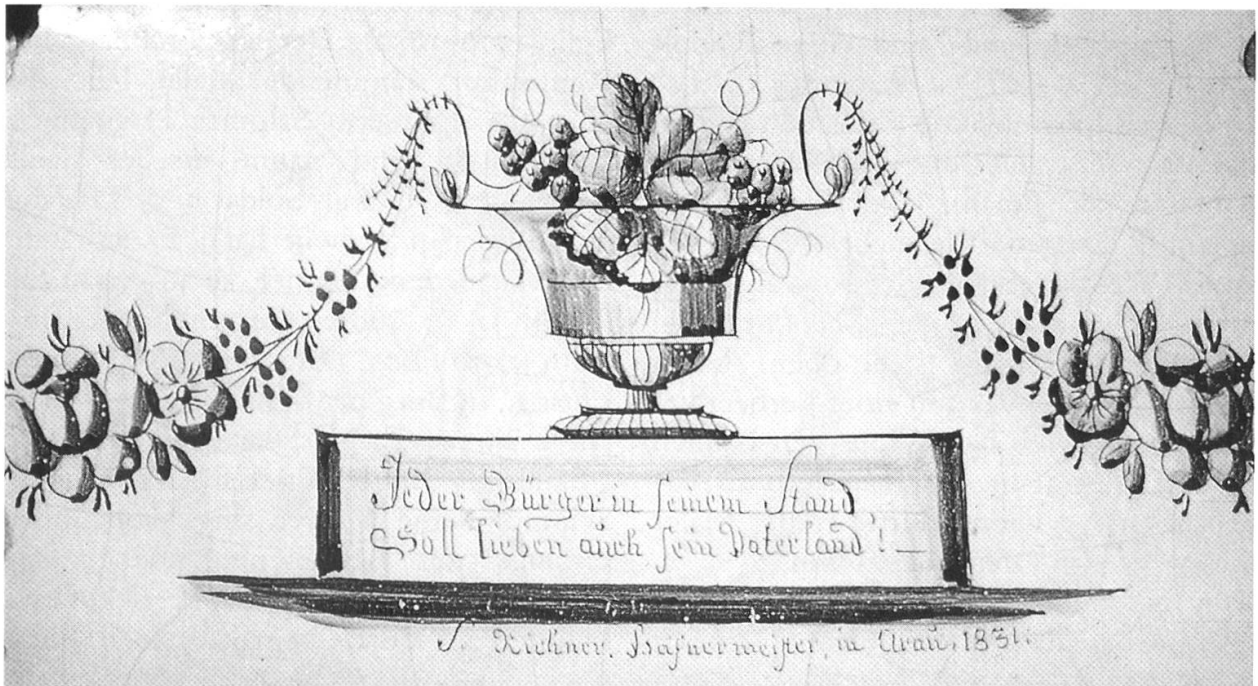 Jeder Bürger in seinem Stand,
Soll lieben auch sein Vaterland! —
J. Kichner. Hafnermeister, in Arau, 1831.